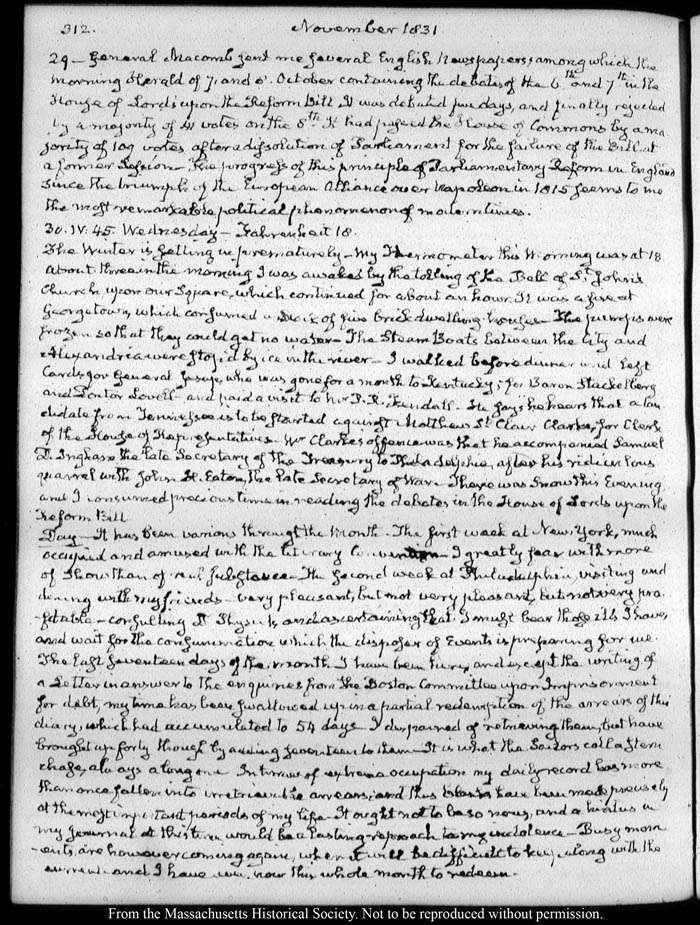 312. November 1831
29 — General Macomb sent me several English Newspapers, among which the
Morning Herald of 7. and 8. October containing the debates of the 6th and 7th in the
House of Lords upon the Reform Bill. It was debated five days, and finally rejected
by a majority of 41 votes on the 8th. It had passed the House of Commons by a ma
jority of 109 votes after a dissolution of Parliament for the failure of the Bill at
a former Session — The progress of this principle of Parliamentary Reform in England
since the triumph of the European Alliance over Napoleon in 1815 seems to me
the most remarkable political phenomenon of modern times.
30. IV: 45. Wednesday — Fahrenheit 18.
The Winter is setting in prematurely — My Thermometer this Morning was at 18
about three in the morning I was awaked by the tolling of the Bell of St. John's
Church upon our Square, which continued for about an hour. It was a fire at
Georgetown, which consumed a block of five brick dwelling-houses — The pumps were
frozen so that they could get no water — The Steam Boats between the City and
Alexandria were stopped by ice in the river — I walked before dinner and left
Cards for General Jesup, who was gone for a month to Kentucky; for Baron Stackelberg
and Doctor Lovell — and paid a visit to Mr. Kendall — He says he hears that a can
didate from Tennessee is to be started against Matthew St. Clair Clarke, for Clerk
of the House of Representatives. Mr Clarke's offence was that he accompanied Samuel
D. Ingham the late Secretary of the Treasury to Philadelphia, after his ridiculous
quarrel with John H. Eaton, the late Secretary of War. There was Snow this Evening
and I consumed precious time in reading the debates in the House of Lords upon the
Reform Bill
Day — It has been various through the Month. The first week at New York, much
occupied and amused with the literary Convention — I greatly fear with more
of Show than of real Substance — The second week at Philadelphia, visiting and
dining with my friends — very pleasant, but not very pleasant, but not very pro
-fitable — consulting Dr Physick, and ascertaining that I must bear those ills I have,
and wait for the consummation which the disposer of Events is preparing for me.
The last seventeen days of the month I have been here, and except the writing of
a Letter in answer to the enquiries from the Boston Committee upon Imprisonment
for debt, my time has been swallowed up in a partial redemption of the arrears of this
diary, which had accumulated to 54 days. I despaired of retrieving them, but have
brought up forty though by adding seventeen to them — It is what the Sailors call a stern
chase, always a long one. In times of extreme occupation my daily record has more
than once fallen into irretrievable arrears, and thus blanks have been made precisely
at the most important periods of my life — It ought not to be so now, and a hiatus in
my journal at this time would be a lasting reproach to my indolence — Busy mom
-ents are however coming again, when it will be difficult to keep along with the
current — and I have now this whole month to redeem.
From the Massachusetts Historical Society. Not to be reproduced without permission.